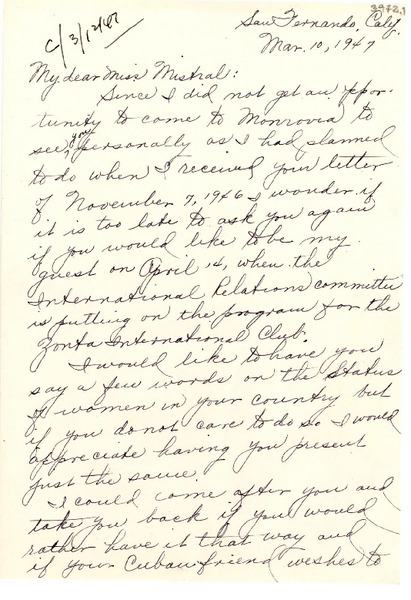 3972.1
San Fernando, Calif.
c/ 3/12/47
Mar. 10, 1947
My dear Miss Mistral:
Since I did not get an oppor-
tunity to come to Monrovia to
see you personally as I had planned
to do when I received your letter
of November 7, 1946 I wonder if
it is too late to ask you again
if you would like to be my
guest on April 14, when the
International Relations committee
is putting on the program for the
Zonta International Club.
I would like to have you
say a few words on the Status
of women in your country but
if you do not care to do so I would
appreciate having you present
just the same.
I could come after you and
take you back if you would
rather have it that way and
if your Cuban friend wishes to